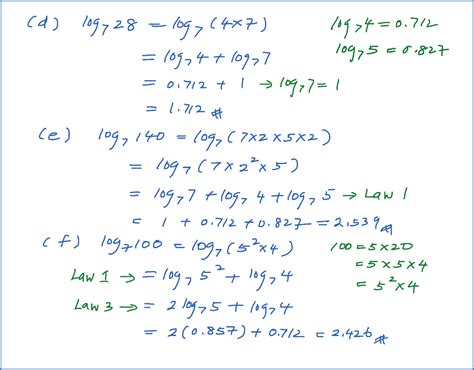 (d) log₇28 = log₇(4×7) log₇4 = 0.712
= log₇4 + log₇7 log₇5 = 0.827
= 0.712 + 1 → log₇7 = 1
= 1.712 #
(e) log₇140 = log₇(7×2×5×2)
= log₇(7×2²×5)
= log₇7 + log₇4 + log₇5 → Law 1
= 1 + 0.712 + 0.827 = 2.539 #
(f) log₇100 = log₇(5²×4) 100 = 5×20
Law 1 → = log₇5² + log₇4 = 5×5×4
Law 3 → = 2log₇5 + log₇4 = 5²×4
= 2(0.857) + 0.712 = 2.426 #